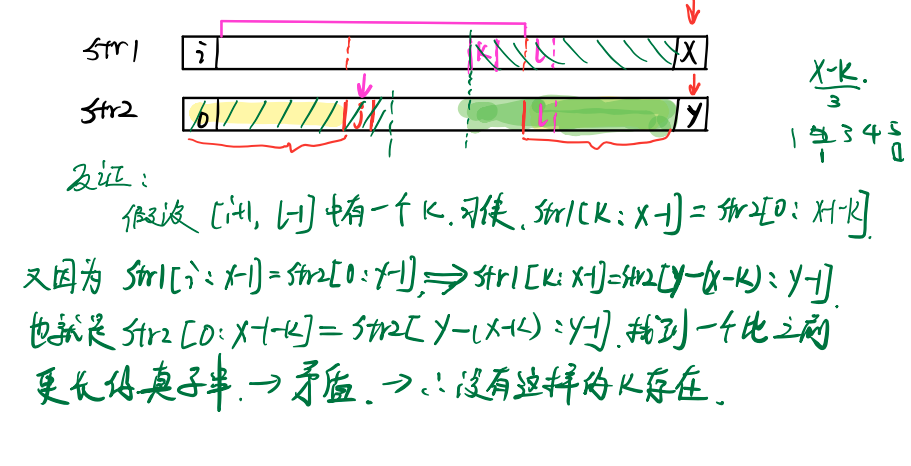 str1 i K l X
str2 0 j l Y
X-K.
3
1 3 4 5
1 0
反证:
假设 [i+1, l-1] 中有一个 K.可使. str1[K:X-1] = str2[0:X-1-K].
又因为 str1[i:X-1]=str2[0:Y-1], ⟹ str1[K:X-1]=str2[Y-(X-K):Y-1].
也就是 str2[0:X-1-K] = str2[Y-(X-K):Y-1]. 找到一个比之前
更长的真子串. → 矛盾. → ∴没有这样的K存在.